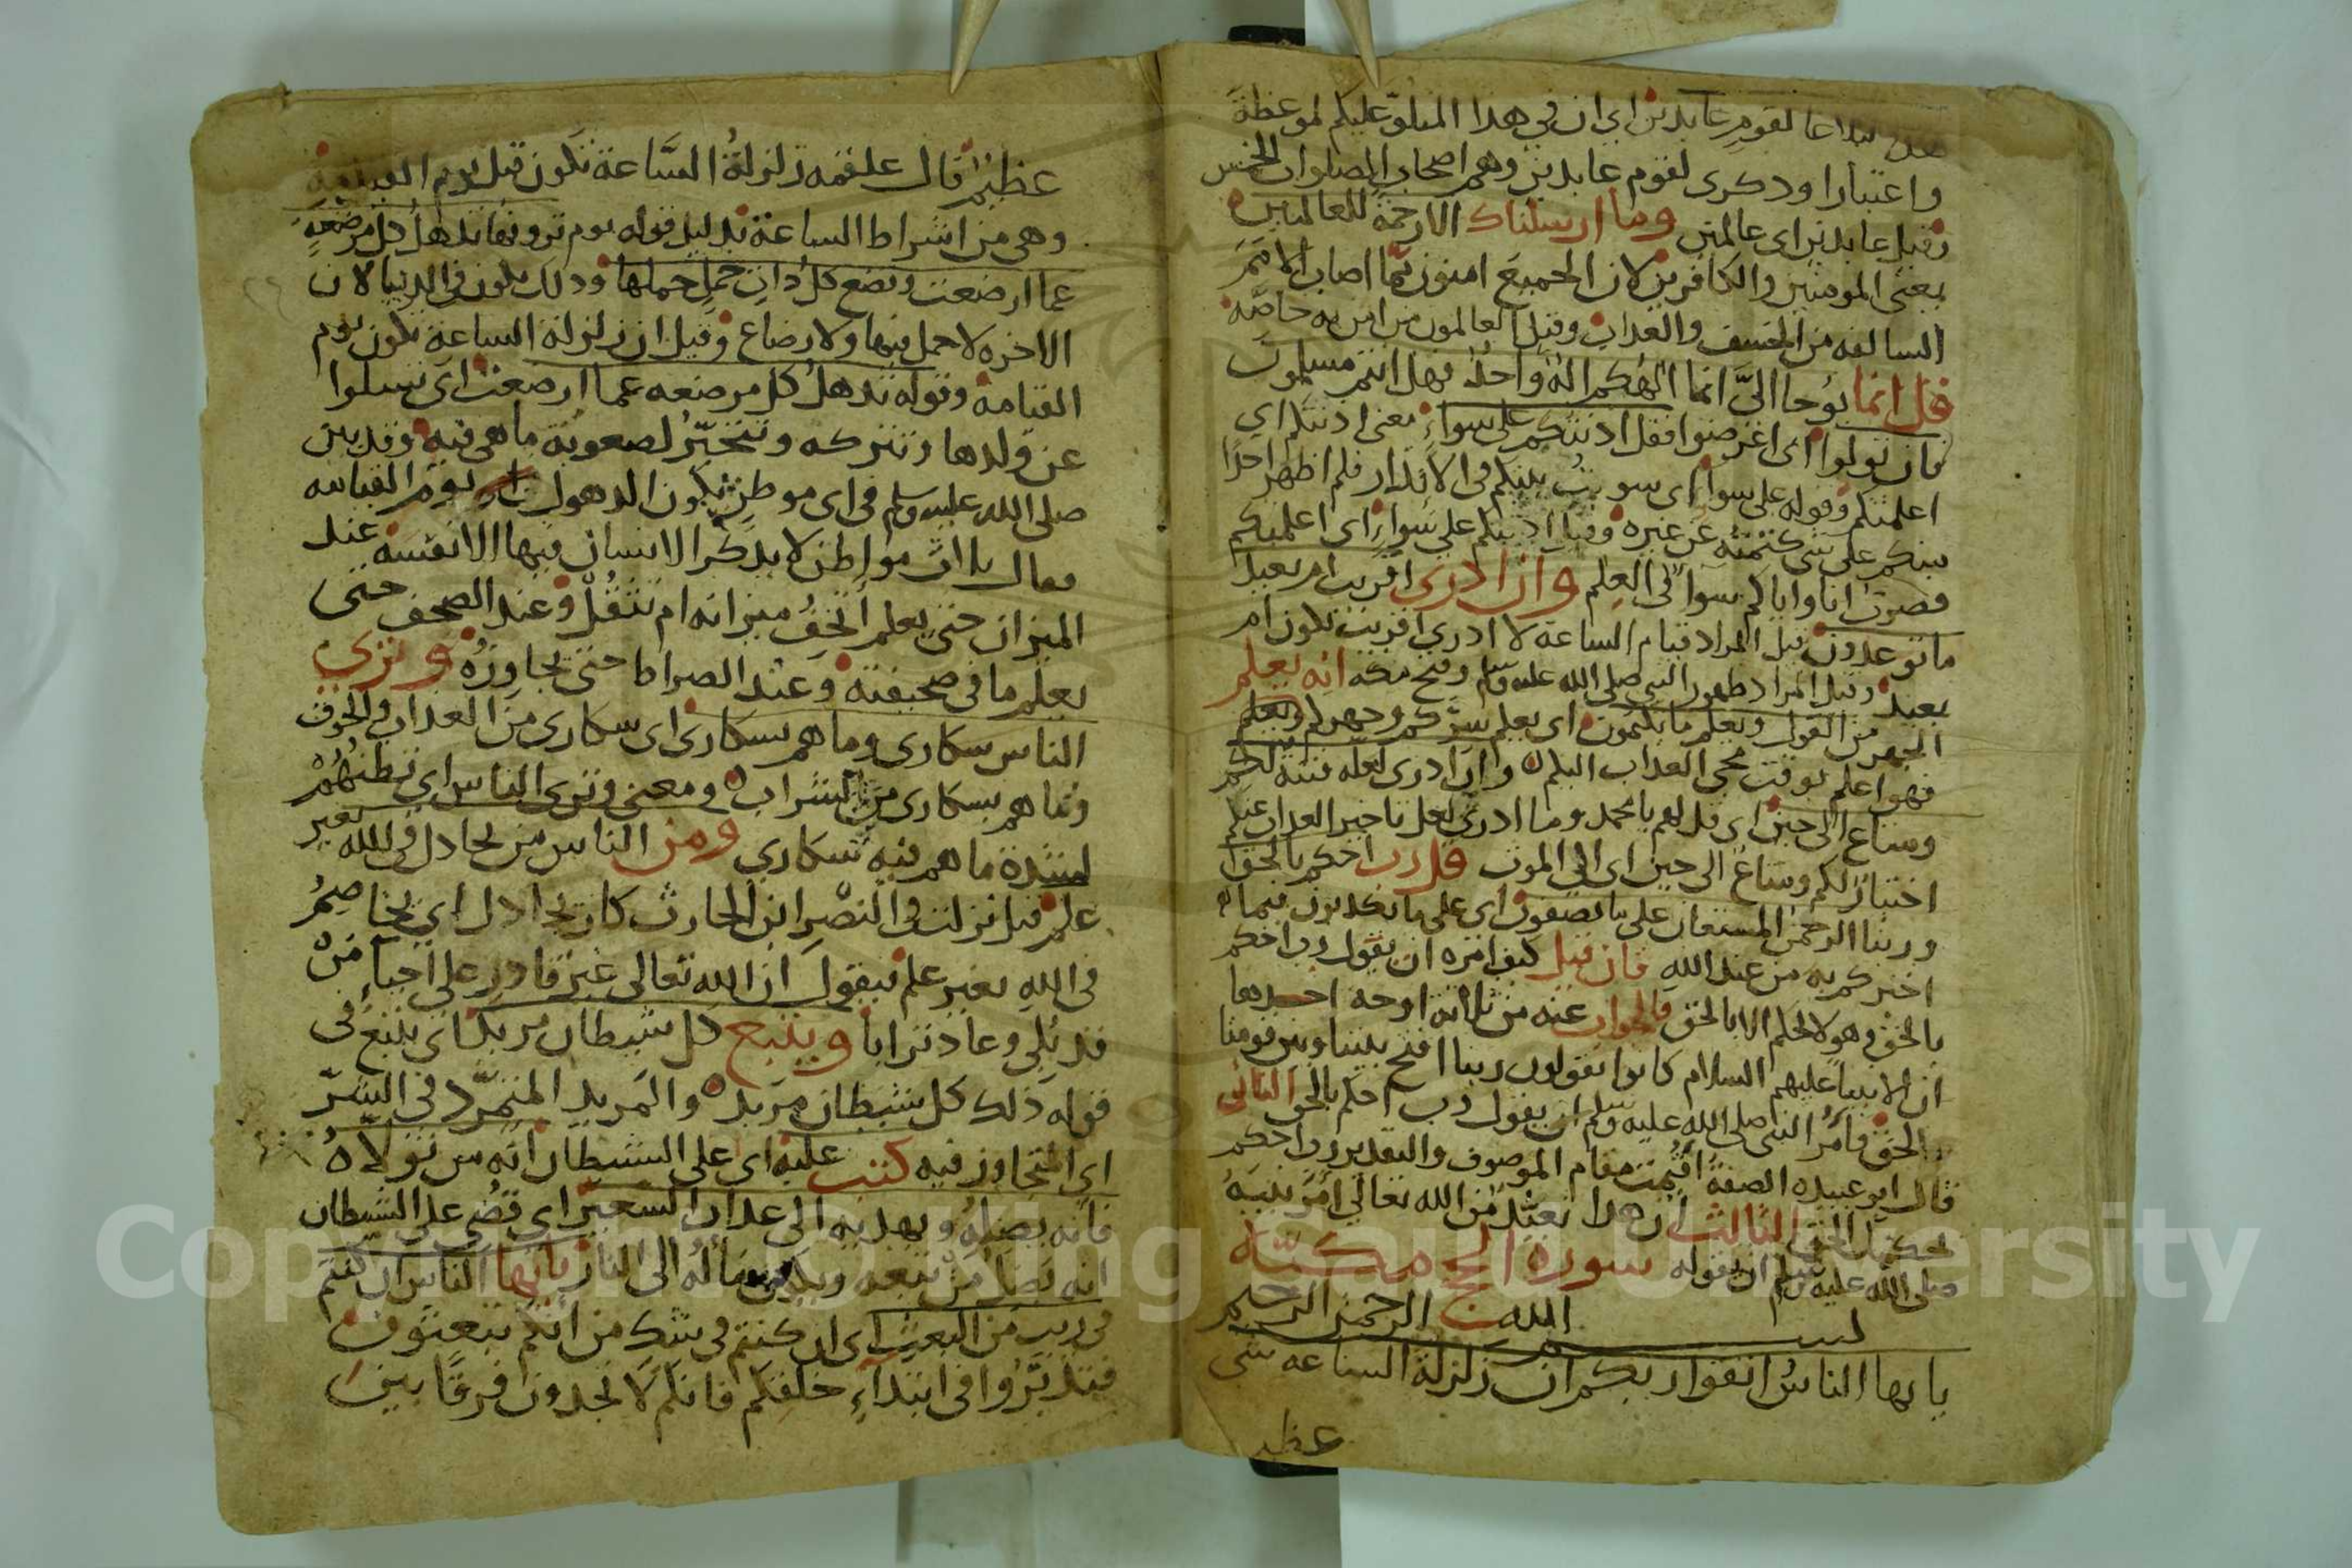 هذا لبلاغا لقوم عابدين اي ان في هذا المتلو عليكم لموعظة
واعتبارا وذكرى لقوم عابدين وهم اصحاب الصلوات الخمس
وقيل عابدين اى عالمين وما ارسلناك الا رحمة للعالمين
يعنى المومنين والكافرين لان الجميع امنون مما اصاب الامم
السالفه من الخسف والعذاب وقيل العالمون من امن به خاصه
قل انما يوحا اليّ انما الهكم اله واحد فهل انتم مسلمون
فان تولوا اى اعرضوا فقل اذنتكم على سواء يعنى اذنتكم اي
اعلمتكم وقوله على سواء اى سويت بينكم في الانذار فلم اظهر احدا
منكم على شى كتمته عن غيره وقيل اذنتكم على سواء اى اعلمتكم
فصرت انا واياكم سواً فى العلم وان ادرى اقريب ام بعيد
ما توعدون قيل المراد قيام الساعة لا ادرى اقريب تكون ام
بعيد وقيل المراد ظهور النبي صلى الله عليه وسلم وفتح مكه انه يعلم
الجهر من القول ويعلم ما تكتمون اى يعلم سركم وجهركم ويعلم
فهو اعلم بوقت مجى العذاب اليكم وان ادرى لعله فتنة لكم
ومتاع الى حين اى قل لهم يا محمد وما ادرى لعل تاخير العذاب عنكم
اختبار لكم ومتاع الى حين اى الى الموت قل رب احكم بالحق
وربنا الرحمن المستعان على ما تصفون اى على ما تكذبون فيما
اخبركم به من عند الله فان قيل كيف امره ان يقول رب احكم
بالحق وهو لا يحكم الا بالحق فالجواب عنه من ثلاثة اوجه احدها
ان الانبياء عليهم السلام كانوا يقولون ربنا افتح بيننا وبين قومنا
بالحق فامر النبي صلى الله عليه وسلم ان يقول رب احكم بالحق الثانى
قال ابو عبيده الصفة اقيمت مقام الموصوف والتقدير رب احكم
بحكمك الحق الثالث ان هذا تعبّد من الله تعالى امر نبيه
صلى الله عليه وسلم ان يقوله سورة الحج مكيّة
بسم الله الرحمن الرحيم
يا ايها الناس اتقوا ربكم ان زلزلة الساعه شى
عظيم
عظيم قال علقمه زلزلة الساعة تكون قبل يوم القيمة
وهى من اشراط الساعة بدليل قوله يوم ترونها تذهل كل مرضعة
عما ارضعت وتضع كل ذات حمل حملها وذلك يكون فى الدنيا لان
الاخره لا حمل فيها ولا رضاع وقيل ان زلزلة الساعة تكون يوم
القيامة وقوله تذهل كل مرضعه عما ارضعت اى تسلوا
عن ولدها وتتركه وتتحيّر لصعوبة ما هى فيه وقد بين
صلى الله عليه وسلم فى اى موطن يكون الذهول يوم القيامه
فقال ثلاث مواطن لا يذكر الانسان فيها الا نفسه عند
الميزان حتى يعلم أيخف ميزانه ام يثقل وعند الصحف حتى
يعلم ما فى صحيفته وعند الصراط حتى يجاوزه وترى
الناس سكارى وما هم بسكارى اى سكارى من العذاب والخوف
وما هم بسكارى من الشراب ومعنى وترى الناس اى تظنهم
لشدة ما هم فيه سكارى ومن الناس من يجادل فى الله بغير
علم قيل نزلت فى النضر ابن الحارث كان يجادل اى يخاصم
فى الله بغير علم فيقول ان الله تعالى غير قادر على احياء من
قد بلي وعاد ترابا ويتبع كل شيطان مريد اى يتبع فى
قوله ذلك كل شيطان مريد والمريد المتمرّد فى الشرّ
اي المتجاوز فيه كتب عليه اى على الشيطان انه من تولاه
فانه يضله ويهديه الى عذاب السعير اى قضى على الشيطان
انه يضل من تبعه الى النار يا ايها الناس ان كنتم
فى ريب من البعث اى ان كنتم فى شك من انكم تبعثون
فتدبّروا فى ابتدآء خلقكم فانكم لا تجدون فرقًا بين
Copyright © King Saud University